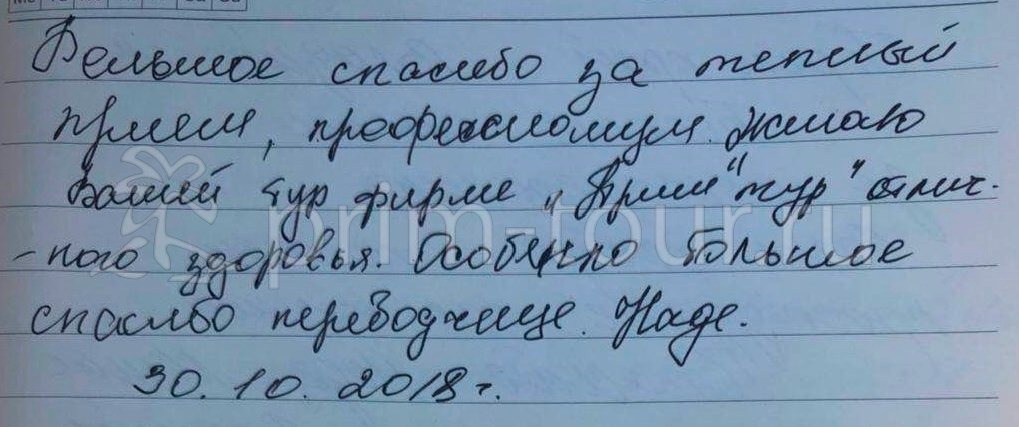 Большое спасибо за теплый
прием, профессионализм. Желаю
Вашей тур фирме „Прим" тур" отлич-
-ного здоровья. Особенно большое
спасибо переводчице. Наде.
30.10.2018г.
prim-tour.ru